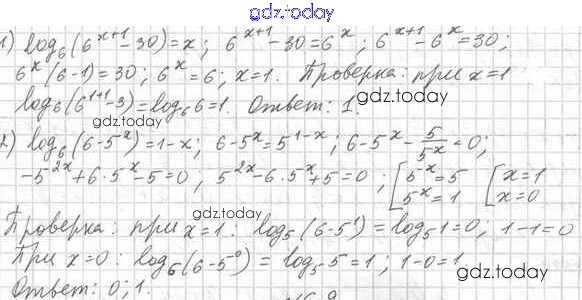 gdz.today
1) log₆(6^(x+1)-30)=x; 6^(x+1)-30=6^x; 6^(x+1)-6^x=30;
6^x(6-1)=30; 6^x=6; x=1. Проверка: при x=1
gdz.today
log₆(6^(1+1)-3)=log₆6=1. Ответ: 1.
gdz.today
2) log₆(6-5^x)=1-x; 6-5^x=5^(1-x); 6-5^x-5/5^x=0;
-5^(2x)+6·5^x-5=0; 5^(2x)-6·5^x+5=0; [5^x=5 [x=1
5^x=1 x=0
gdz.today
Проверка: при x=1: log₅(6-5^1)=log₅1=0; 1-1=0
При x=0: log₆(6-5^0)=log₅5=1; 1-0=1
gdz.today
Ответ: 0; 1.